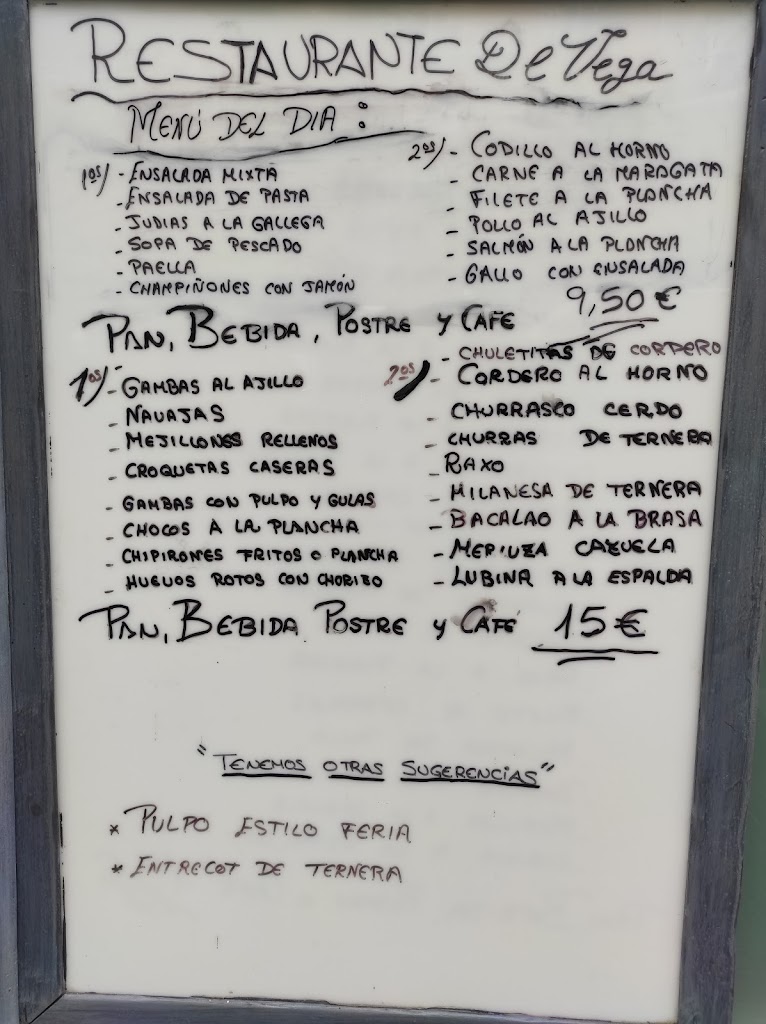 RESTAURANTE De Vega
MENÚ DEL DIA :
1os/ - ENSALADA MIXTA
- ENSALADA DE PASTA
- JUDIAS A LA GALLEGA
- SOPA DE PESCADO
- PAELLA
- CHAMPIÑONES CON JAMÓN
2os/ - CODILLO AL HORNO
- CARNE A LA MARAGATA
- FILETE A LA PLANCHA
- POLLO AL AJILLO
- SALMÓN A LA PLANCHA
- GALLO CON ENSALADA
9,50 €
PAN, BEBIDA, POSTRE Y CAFE
1os/ - GAMBAS AL AJILLO
- NAVAJAS
- MEJILLONES RELLENOS
- CROQUETAS CASERAS
- GAMBAS CON PULPO Y GULAS
- CHOCOS A LA PLANCHA
- CHIPIRONES FRITOS O PLANCHA
- HUEVOS ROTOS CON CHORIZO
- CHULETITAS DE CORDERO
2os/ - CORDERO AL HORNO
- CHURRASCO CERDO
- CHURRAS DE TERNERA
- RAXO
- MILANESA DE TERNERA
- BACALAO A LA BRASA
- MERLUZA CAZUELA
- LUBINA A LA ESPALDA
PAN, BEBIDA POSTRE Y CAFÉ 15 €
"TENEMOS OTRAS SUGERENCIAS"
* PULPO ESTILO FERIA
* ENTRECOT DE TERNERA